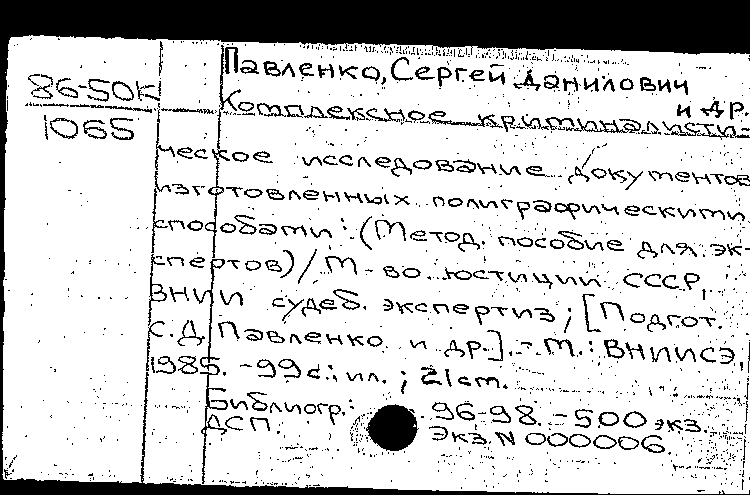 Павленко, Сергей Данилович
и др.
86-50к
1065
Комплексное криминалисти-
ческое исследование документов
изготовленных полиграфическими
способами: (Метод. пособие для эк-
спертов) / М-во юстиции СССР,
ВНИИ судеб. экспертиз; [Подгот.
С.Д. Павленко и др.]. - М.: ВНИИСЭ,
1985. - 99 с.: ил.; 21 cm.
Библиогр.: 96-98. - 500 экз.
ДСП. Экз. N 000006